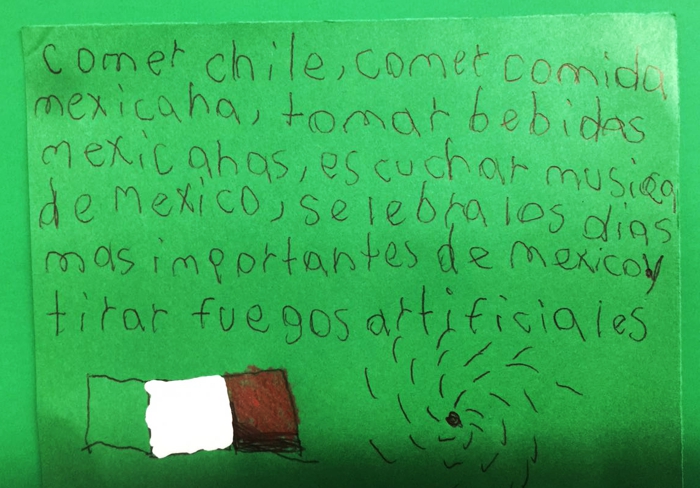 comer chile, comer comida
mexicana, tomar bebidas
mexicanas, escuchar musica
de mexico, selebra los dias
mas importantes de mexico y
tirar fuegos artificiales